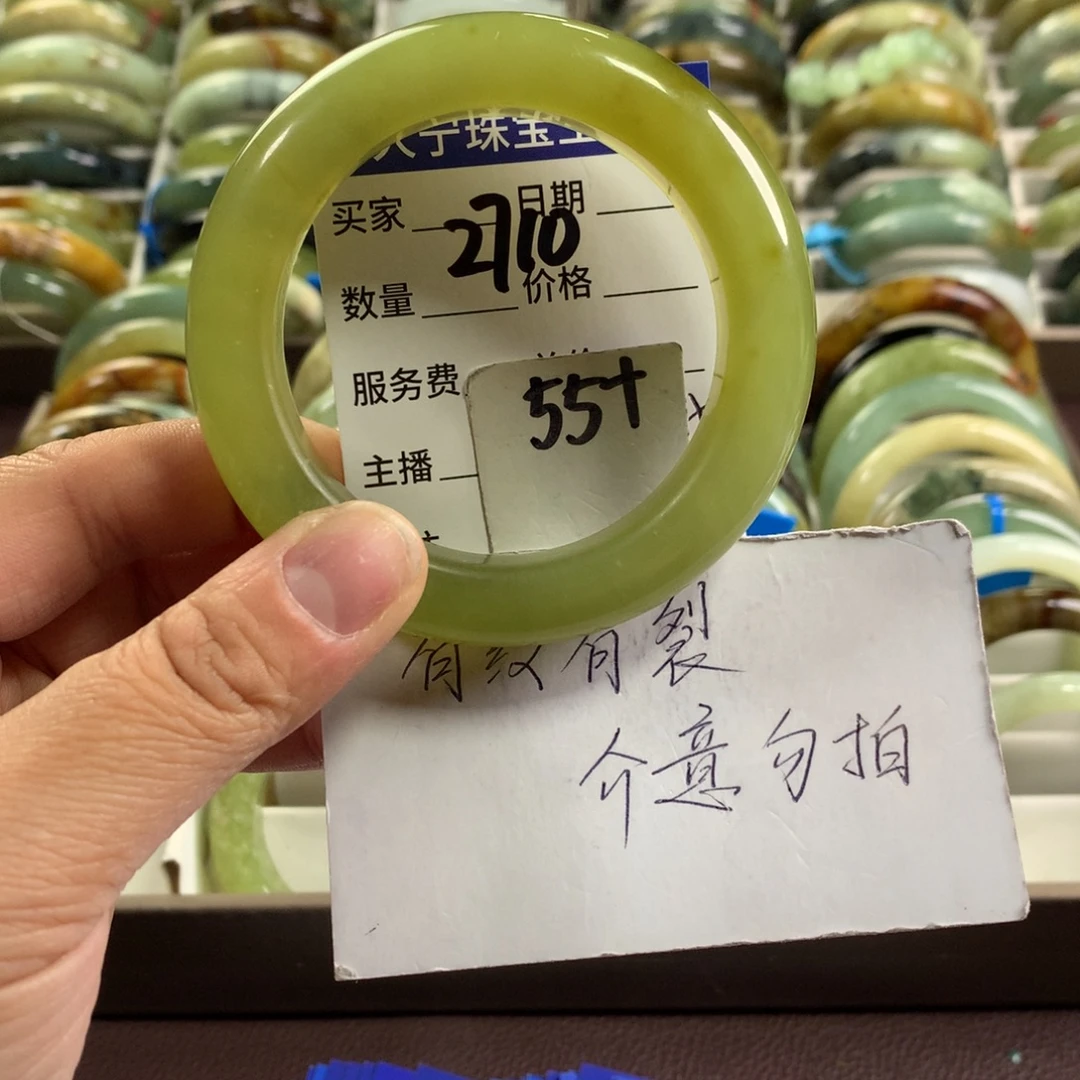 宁珠宝
买家 日期
2710
数量 价格
服务费
55+
主播
有纹有裂
介意勿拍